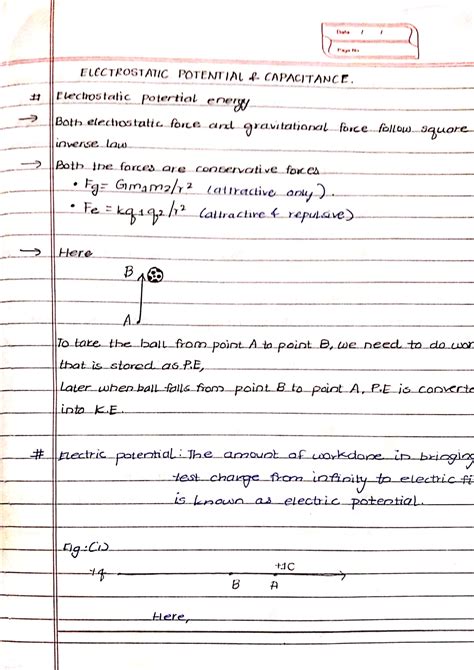 Date / /
Page No
ELECTROSTATIC POTENTIAL & CAPACITANCE.
# Electrostatic potential energy
→ Both electrostatic force and gravitational force follow square
inverse law
→ Both the forces are conservative forces
• Fg = Gm1m2/r² (attractive only).
• Fe = kq1q2/r² (attractive & repulsive)
→ Here
B
A
To take the ball from point A to point B, we need to do wor
that is stored as P.E,
Later when ball falls from point B to point A, P.E is converte
into K.E.
# Electric potential: The amount of workdone in bringing
test charge from infinity to electric fi
is known as electric potential.
Fig:(1)
+1C
+q B A
Here,